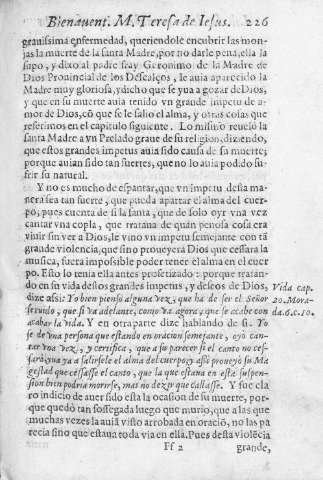 Bienauent. M. Teresa de Iesus. 226
grauissima enfermedad, queriendole encubrir las mon-
jas la muerte de la santa Madre, por no darle pena, ella la
supo, y dixo al padre fray Geronimo de la Madre de
Dios Prouincial de los Descalços, le auia aparecido la
Madre muy gloriosa, y dicho que se yua a gozar de Dios,
y que en su muerte auia tenido vn grande impetu de a-
mor de Dios, cõ que se le salio el alma, y otras cosas que
referimos en el capitulo siguiente. Lo mismo reuelò la
santa Madre a vn Prelado graue de su religion, diziendo,
que estos grandes impetus auia sido causa de su muerte;
porque auian sido tan fuertes, que no lo auia podido su-
frir su natural.
Y no es mucho de espantar, que vn impetu desta ma-
nera sea tan fuerte, que pueda apartar el alma del cuer-
po, pues cuenta de si la santa, que de solo oyr vna vez
cantar vna copla, que trataua de quàn penosa cosa era
viuir sin ver a Dios, le vino vn impetu semejante con tã
grande violencia, que sino proueyera Dios que cessara la
musica, fuera impossible poder tener el alma en el cuer
po. Esto lo tenia ella antes profetizado: porque tratan-
do en su vida destos grandes impetus, y deseos de Dios,
dize assi: Yo bien pienso alguna vez, que ha de ser el Señor
seruido, que si va adelante, como va agora, que se acabe con
acabar la vida. Y en otra parte dize hablando de si. Yo
se de vna persona que estando en oracion semejante, oyò can-
tar vna vez, y certifica, que a su parecer si el canto no ces-
sara, yua ya a salirsele el alma del cuerpo; y assi proueyò su Ma
gestad que cessasse el canto, que la que estaua en esta suspen-
sion bien podria morirse, mas no dezir que callasse. Y fue cla
ro indicio de auer sido esta la ocasion de su muerte, por-
que quedò tan sossegada luego que murio, que a las que
muchas vezes la auiã visto arrobada en oraciõ, no las pa
recia sino que estaua toda via en ella. Pues desta violẽcia
Vida cap.
20. Mora-
da. 6. c. 10.
Ff 2 grande,